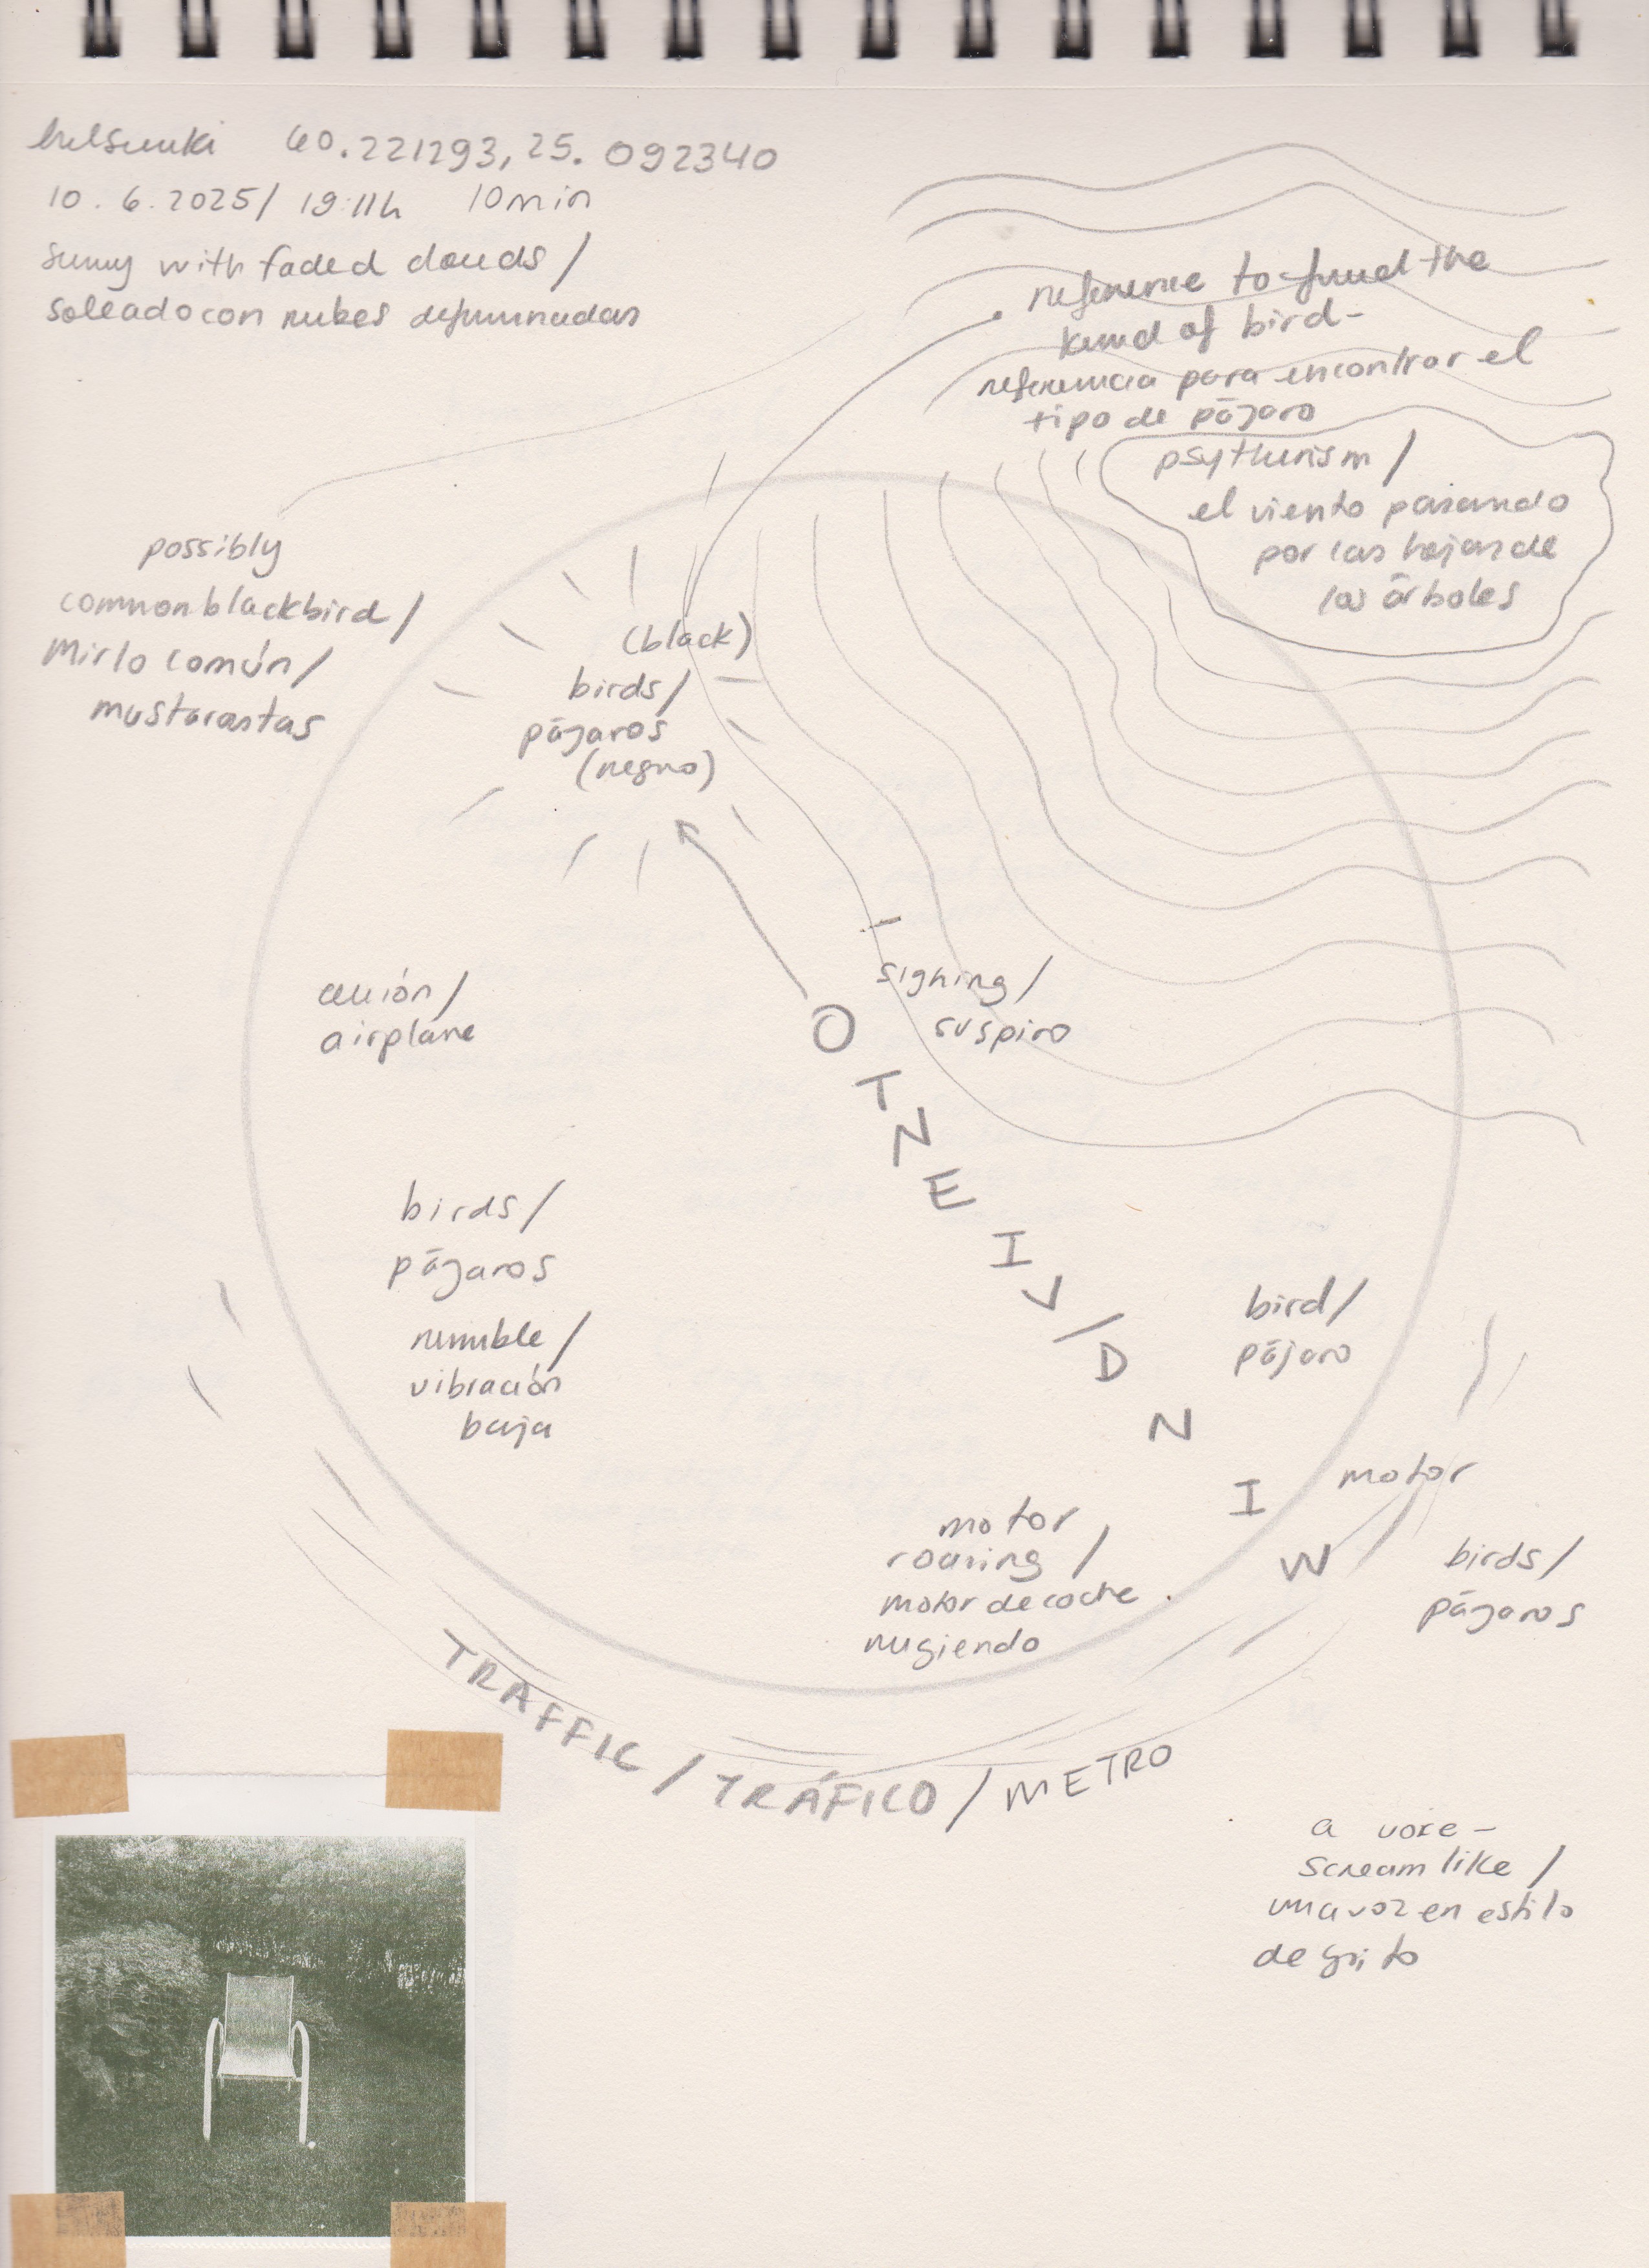 helsinki 60.221293, 25.092340
10.6.2025 / 19:11h 10min
sunny with faded clouds /
soleado con nubes difuminadas
reference to find the
kind of bird-
referencia para encontrar el
tipo de pájaro
psythurism /
el viento pasando
por las hojas de
los árboles
possibly
common blackbird /
Mirlo común /
mustarastas
(black)
birds /
pájaros
(negro)
sighing /
suspiro
avión /
airplane
birds /
pájaros
rumble /
vibración
baja
WIND / VIENTO
bird /
pájaro
motor
motor
roaring /
motor de coche
rugiendo
birds /
pájaros
TRAFFIC / TRÁFICO / METRO
a voice -
scream like /
una voz en estilo
de grito